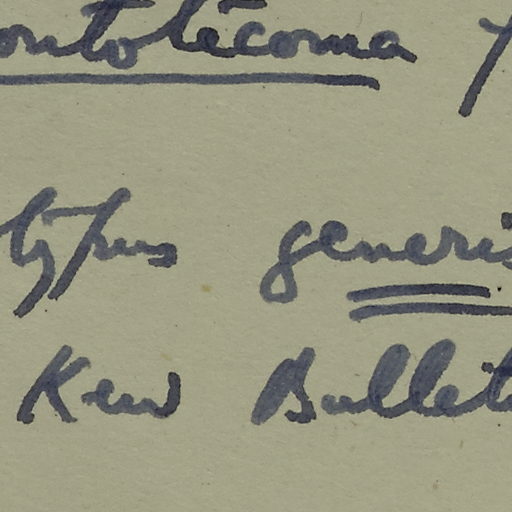 ontotecoma
typus generis
Kew Bullet